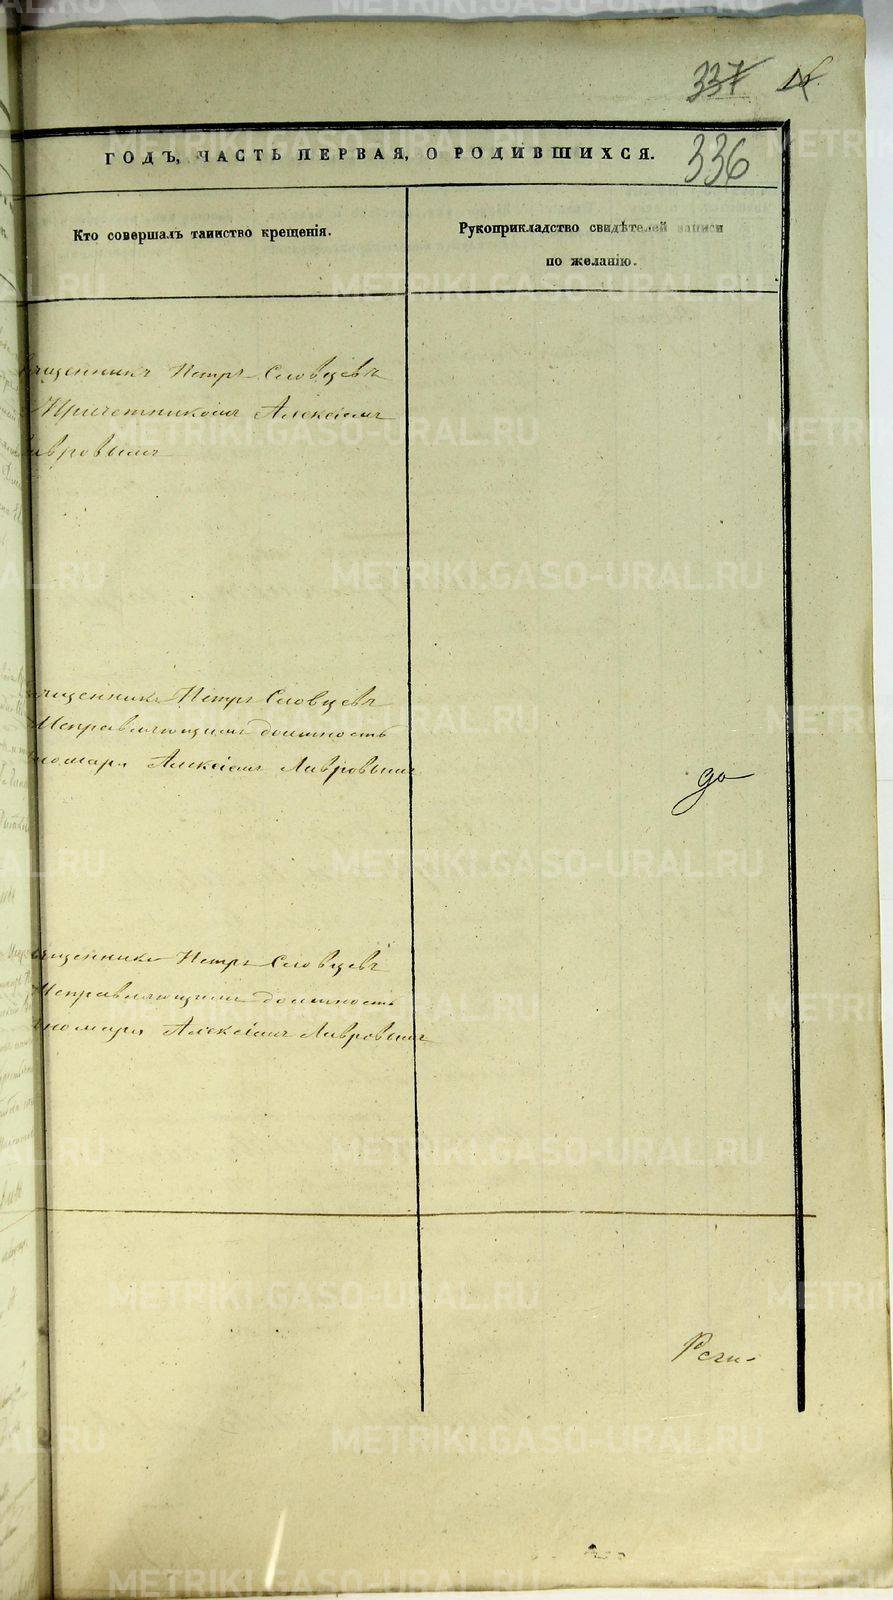 337
336
ГОДЪ, ЧАСТЬ ПЕРВАЯ, О РОДИВШИХСЯ.
Кто совершалъ таинство крещенія.
Рукоприкладство свидѣтелей записи
по желанію.
щенникъ Петръ Словцевъ
Причетникомъ Алексіемъ
вровымъ
щенникъ Петръ Словцевъ
Исправляющимъ должность
номаря Алексіемъ Лавровымъ
до
щенникъ Петръ Словцевъ
Исправляющимъ должность
номаря Алексіемъ Лавровымъ
METRIKI.GASO-URAL.RU